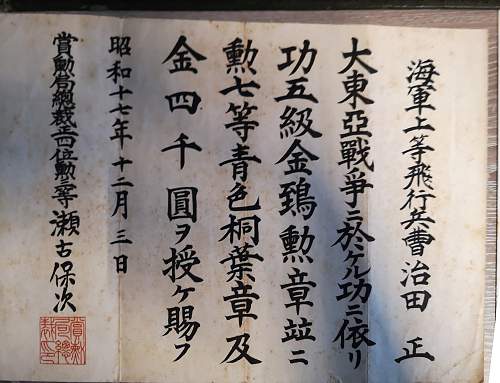 海軍上等飛行兵曹治田 正
大東亞戰爭ニ於ケル功ニ依リ
功五級金鵄勲章竝ニ
勲七等青色桐葉章及
金四千圓ヲ授ケ賜フ
昭和十七年十二月三日
賞勲局總裁正四位勲二等瀬古保次
賞勲局總裁印